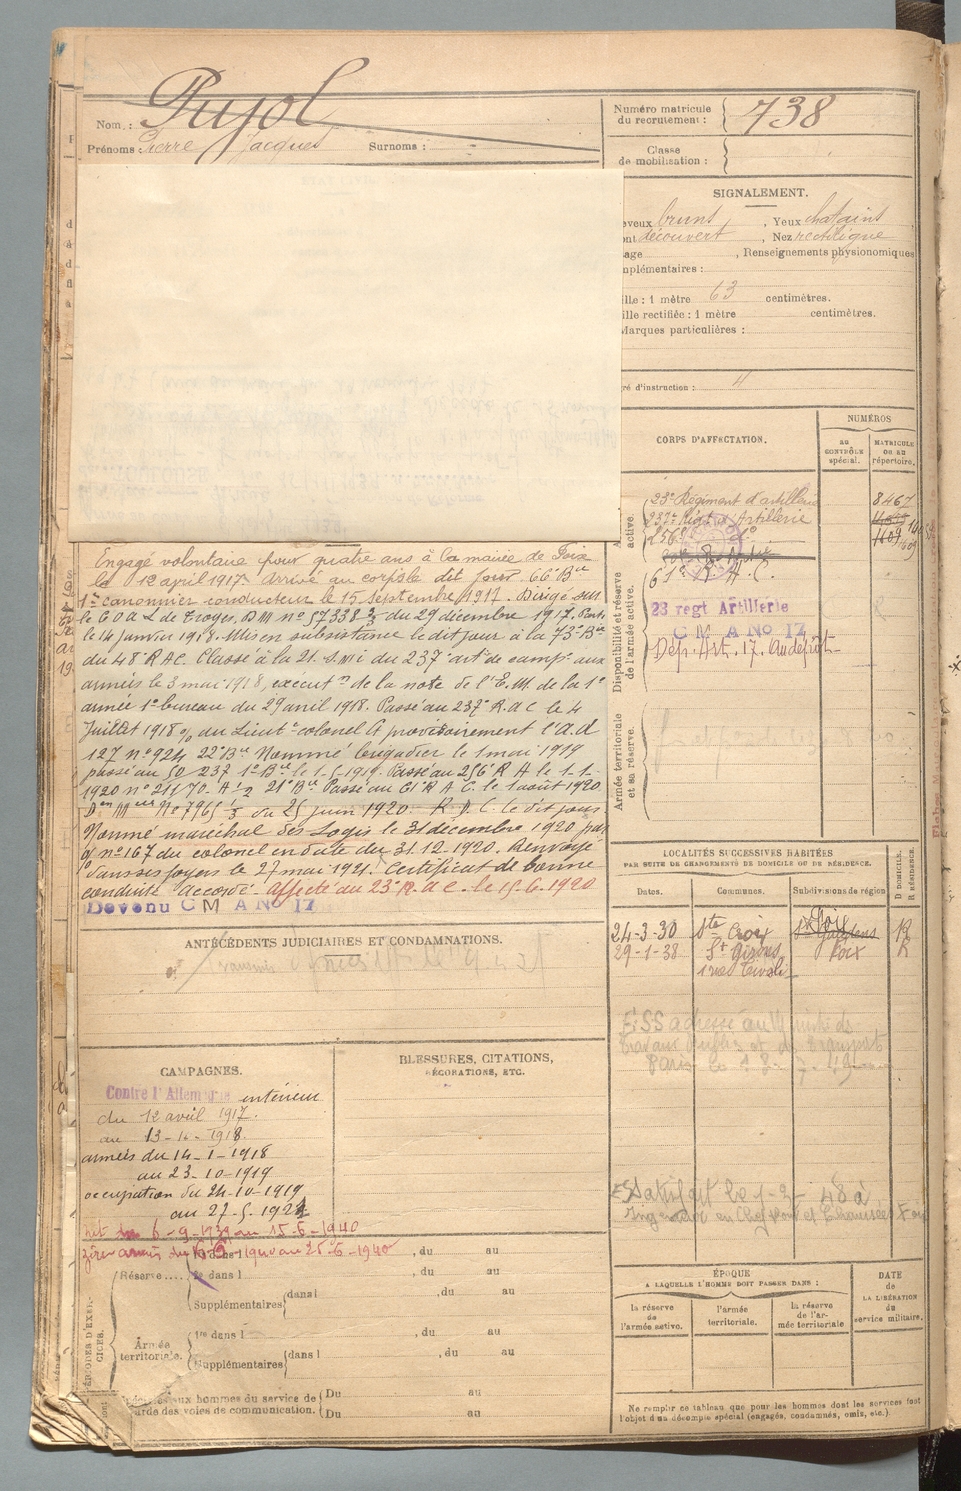 Nom : Pujol
Prénoms : Pierre Jacques Surnoms :
Numéro matricule
du recrutement : 738
Classe
de mobilisation :
SIGNALEMENT.
eveux bruns , Yeux chatains
ont découvert , Nez rectiligne
sage , Renseignements physionomiques
mplémentaires :
ille : 1 mètre 63 centimètres.
ille rectifiée : 1 mètre centimètres.
Marques particulières :
ré d'instruction :
CORPS D'AFFECTATION.
NUMÉROS
au CONTRÔLE spécial.
MATRICULE ou au répertoire.
active.
23e Régiment d'artillerie 8467
237e Régt d'Artillerie
256e
Disponibilité et réserve
de l'armée active.
61e R.A.C.
23 regt Artillerie
C M A No 17
Dep. Art. 17. Au dépôt
Armée territoriale
et sa réserve.
Engagé volontaire pour quatre ans à la mairie de Foix
le 12 avril 1917. Arrivé au corps le dit jour. 66e Bie
1er canonnier conducteur le 15 septembre 1917. Dirigé sur
le C O A L de Troyes, D M no 57338 3/3 du 29 décembre 1917. Parti
le 14 janvier 1918. Mis en subsistance le dit jour à la 73e Bie
du 48e R A C. Classé à la 21. S. M. I du 237e artie de campe aux
armées le 3 mai 1918, exécutn de la note de l'E.M. de la 1e
armée 1er bureau du 29 avril 1918. Passé au 237e R.a.C le 4
Juillet 1918 du Lieutt colonel Ct provisoirement l'a.d
127 no 924 22e Bie Nommé brigadier le 1 mai 1919
passé au 237 1e Bie le 1-5-1919. Passé au 256e R A le 1-1-
1920 no 211/70. 21e Bie Passé au 61e R A C. le 1 août 1920
No 7965 1/3 du 25 juin 1920. R.A.C. le dit jour
Nommé maréchal des Logis le 31 décembre 1920 par
no 167 du colonel en date du 31.12.1920. Renvoyé
dans ses foyers le 27 mai 1921. Certificat de bonne
conduite Accordé. Affecté au 23e R.A.C. le 15.6.1920
Devenu C M A No 17
ANTÉCÉDENTS JUDICIAIRES ET CONDAMNATIONS.
LOCALITÉS SUCCESSIVES HABITÉES
PAR SUITE DE CHANGEMENTS DE DOMICILE OU DE RÉSIDENCE.
Dates. Communes. Subdivisions de région
D DOMICILE.
R RÉSIDENCE.
24-3-30 Ste Croix St Gaudens Foix R
29-1-38 St Girons Foix R
rue Tivoli
ESS adressé au Ministre des
travaux Publics et des transports
Paris le 18-7-49
Satisfait le
Ingénieur en Chef Ponts et Chaussées Foix
CAMPAGNES.
Contre l'Allemagne intérieur
du 12 avril 1917.
au 13-1-1918.
armées du 14-1-1918
au 23-10-1919
occupation du 24-10-1919
au 27-5-1921
6-9-1939 au 15-6-1940
au 25-6-1940
BLESSURES, CITATIONS,
DÉCORATIONS, ETC.
PÉRIODES D'EXERCICES.
Réserve.....
1re dans l , du au
2e dans l , du au
Supplémentaires dans l , du au
Armée
territoriale.
1re dans l , du au
Supplémentaires dans l , du au
aux hommes du service de
garde des voies de communication.
Du au
Du au
ÉPOQUE
A LAQUELLE L'HOMME DOIT PASSER DANS :
la réserve de l'armée active.
l'armée territoriale.
la réserve de l'armée territoriale
DATE
de
LA LIBÉRATION
du
service militaire.
Ne remplir ce tableau que pour les hommes dont les services font
l'objet d'un décompte spécial (engagés, condamnés, omis, etc.)